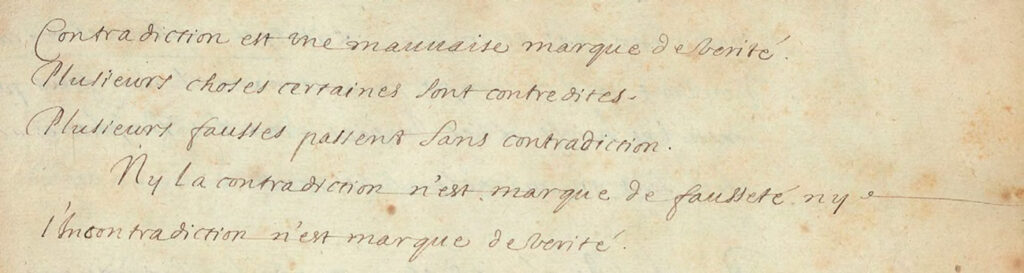 Contradiction est vne mauuaise marque de verité.
Plusieurs choses certaines sont contredites.
Plusieurs fausses passent sans contradiction.
Ny la contradiction n'est marque de fausseté ny
l'incontradiction n'est marque de verité.